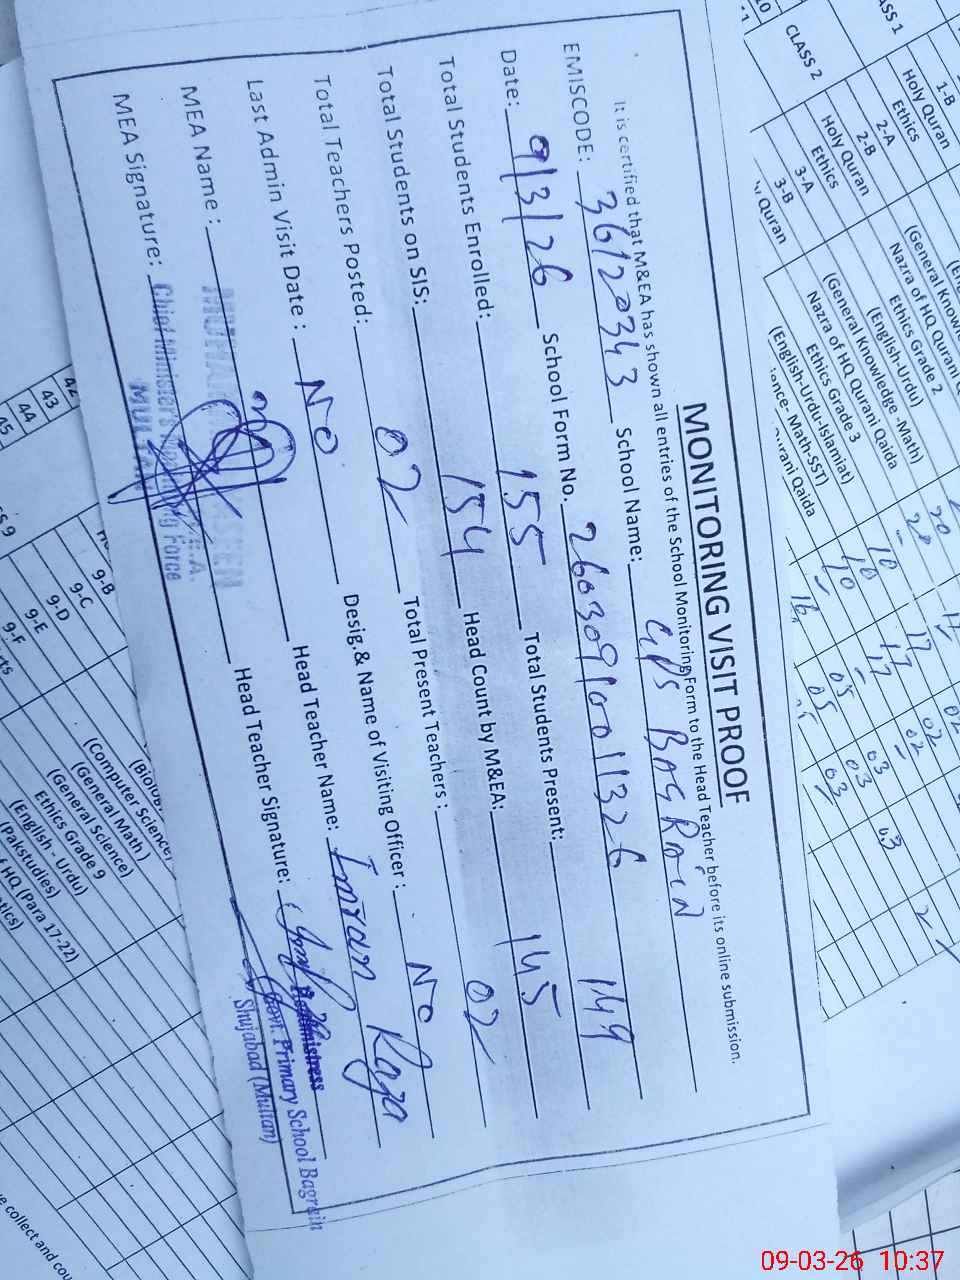 MONITORING VISIT PROOF
It is certified that M&EA has shown all entries of the School Monitoring Form to the Head Teacher before its online submission.
EMISCODE: 36120343 School Name: GPS BAGRAIN
Date: 9/3/26 School Form No. 260309100011326
Total Students Enrolled: 155 Total Students Present: 149
Total Students on SIS: 154 Head Count by M&EA: 145
Total Teachers Posted: 02 Total Present Teachers : 02
Last Admin Visit Date : No Desig.& Name of Visiting Officer : No
MEA Name : Head Teacher Name: Imran Raza
MEA Signature: Head Teacher Signature:
Chief Minister's Monitoring Force
MULTAN
Headmistress
Govt. Primary School Bagrain
Shujabad (Multan)
CLASS 2
1-B
Holy Quran
Ethics
2-A
2-B
Holy Quran
Ethics
3-A
3-B
Quran
Nazra of HQ Qurani
Ethics Grade 2
(English-Urdu)
(General Knowledge -Math)
Nazra of HQ Qurani Qaida
Ethics Grade 3
(English-Urdu-Islamiat)
Math-SST)
Qurani Qaida
42
43
44
45
9-B
9-C
9-D
9-E
9-F
(Computer Science)
(General Math )
(General Science)
Ethics Grade 9
(English - Urdu)
(Pakstudies)
HQ (Para 17-22)
collect and
09-03-26 10:37